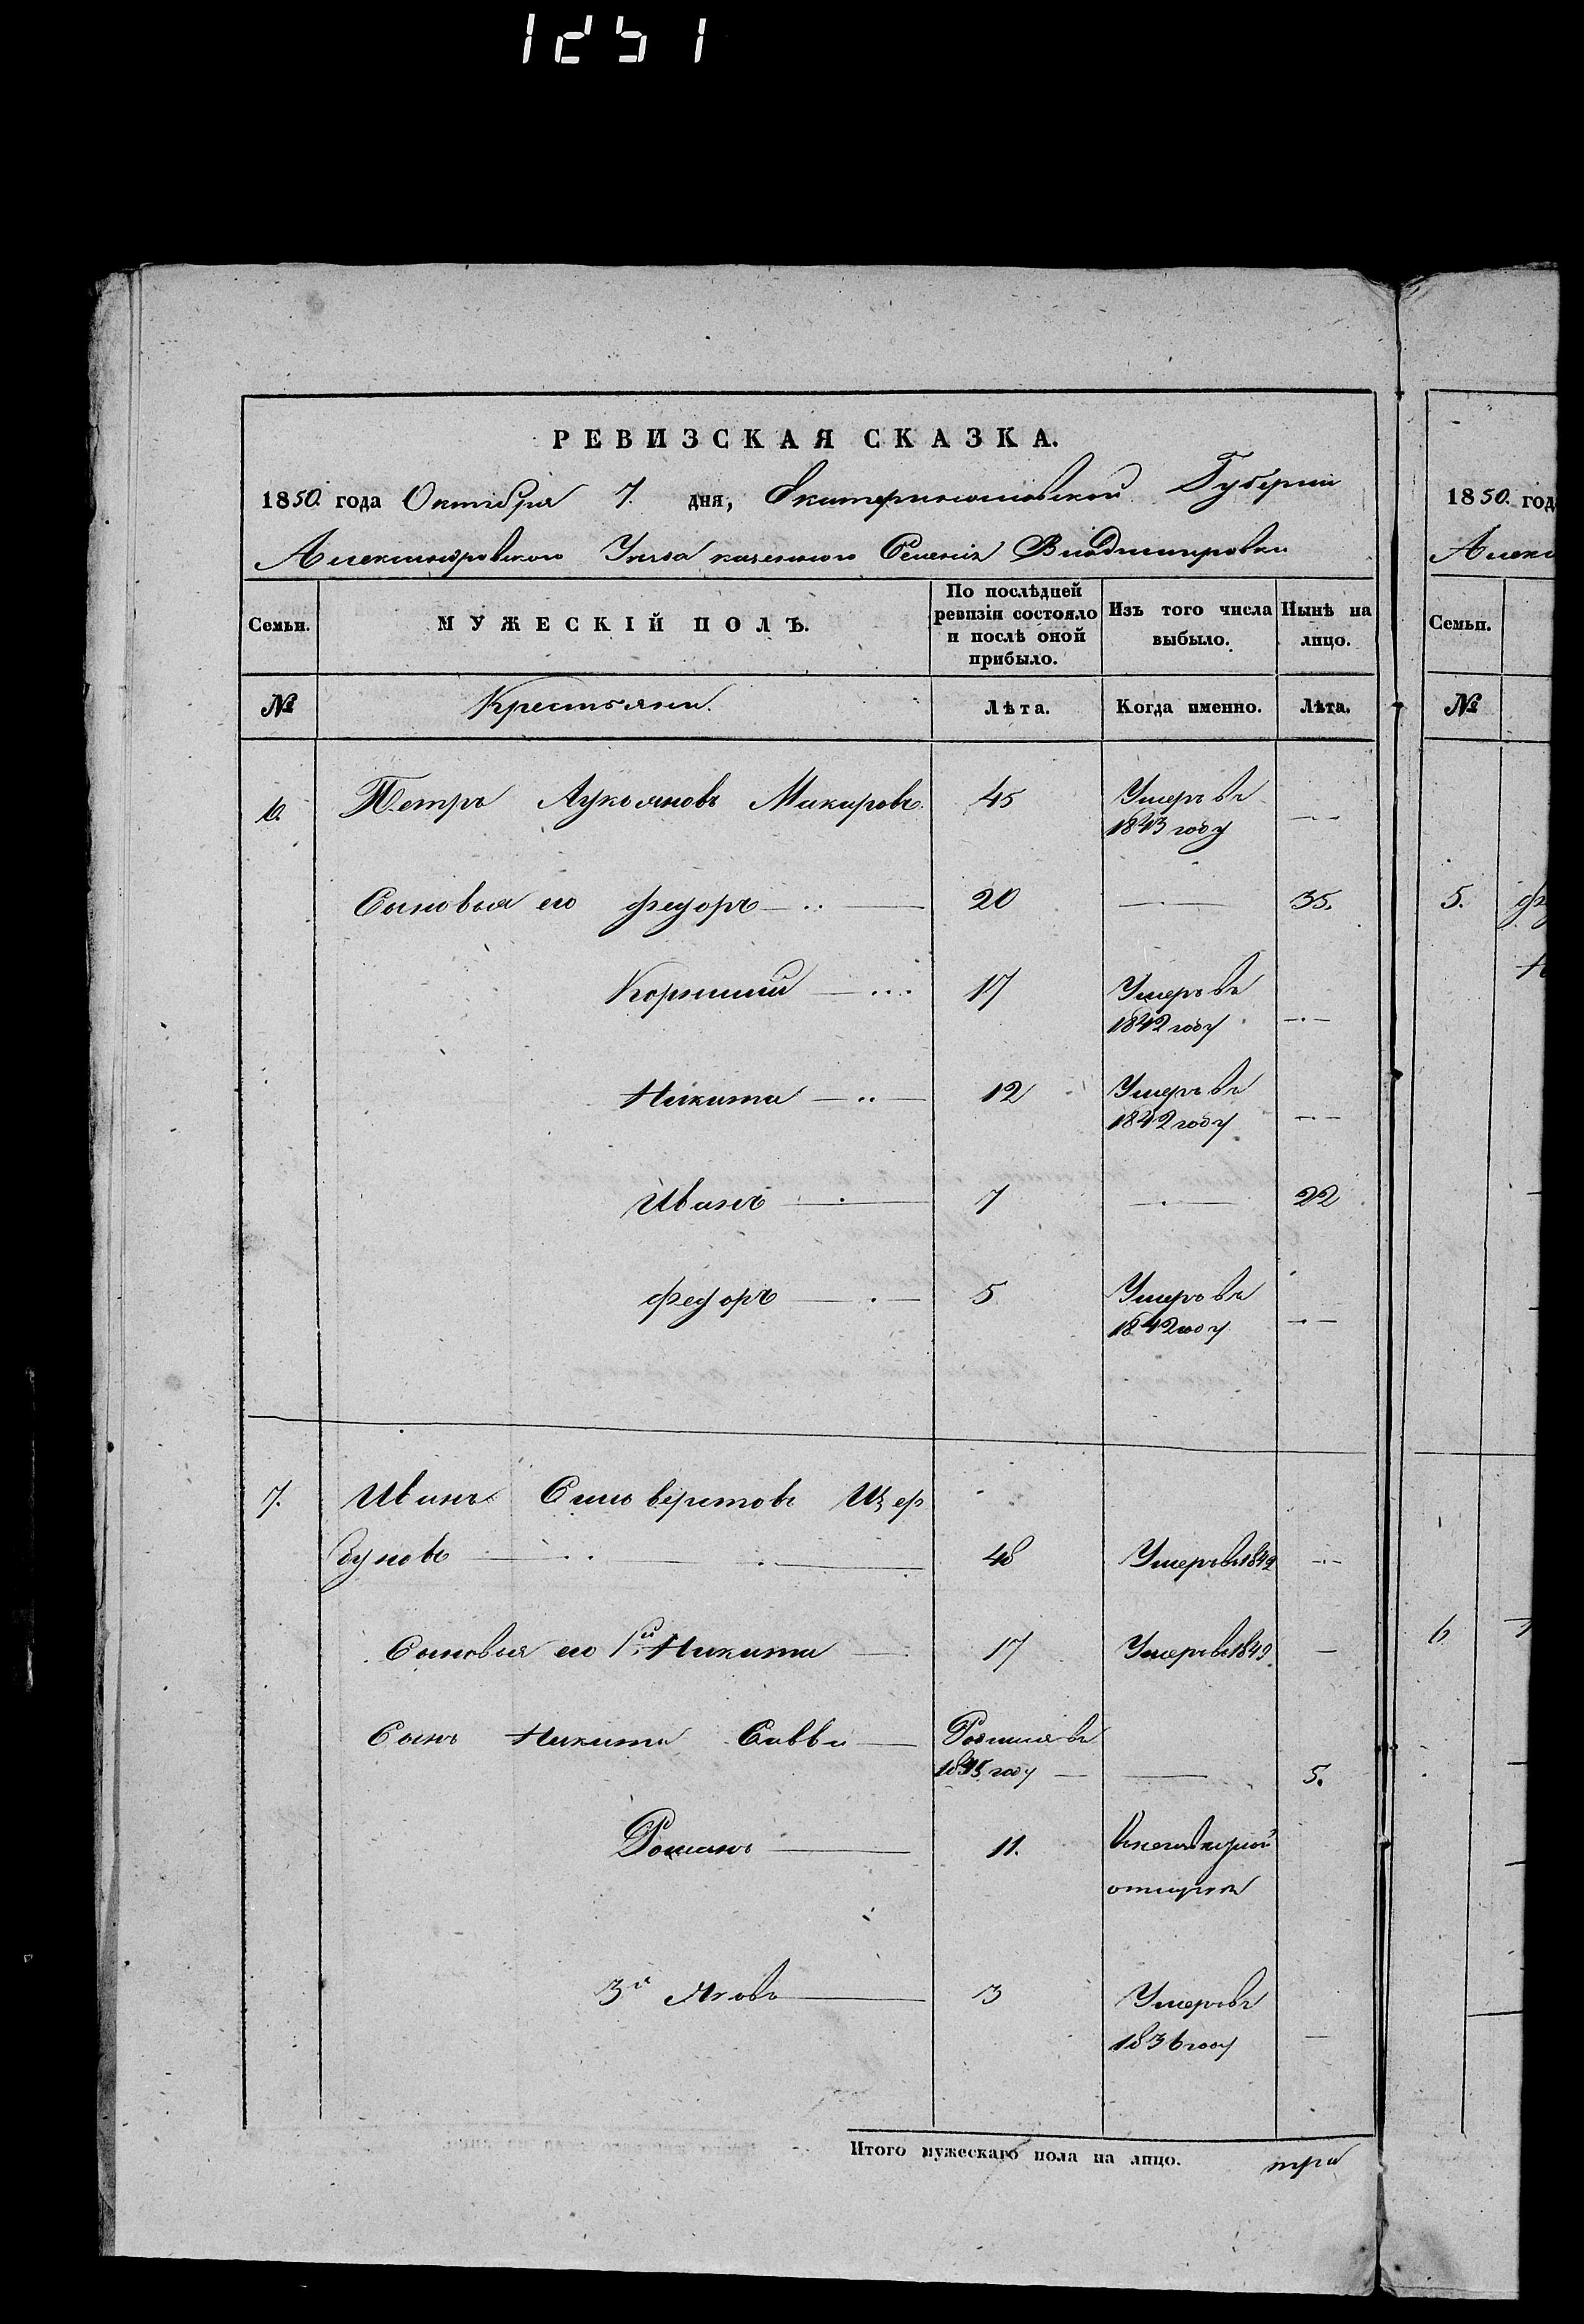 1251
РЕВИЗСКАЯ СКАЗКА.
1850. года Октября 7. дня, Екатеринославской Губернии
Александровского Уезда казенного Селенія Владимировки
Семьи.
МУЖЕСКІЙ ПОЛЪ.
По послѣдней ревизіи состояло и послѣ оной прибыло.
Изъ того числа выбыло.
Нынѣ на лицо.
№
Крестьяни.
Лѣта.
Когда именно.
Лѣта.
6. Петръ Лукьяновъ Макаровъ 45 Умеръ въ
1843 году
Сыновья его Федоръ 20 35.
17 Умеръ въ
1842 году
Никита 12 Умеръ въ
1842 году
Иванъ 7 22
Федоръ 5 Умеръ въ
1842 году
7. Иванъ Селиверстовъ Щер
буновъ 48 Умеръ въ 1849
Сыновья его 1й Никита 17 Умеръ въ 1849.
Сынъ Никиты Савва Родился въ
1845 году 5.
Романъ 11.
3й Яковъ 3 Умеръ въ
1836 году
Итого мужескаго пола на лицо. три
1850. год
Алекс
Семьи.
№
5.
6